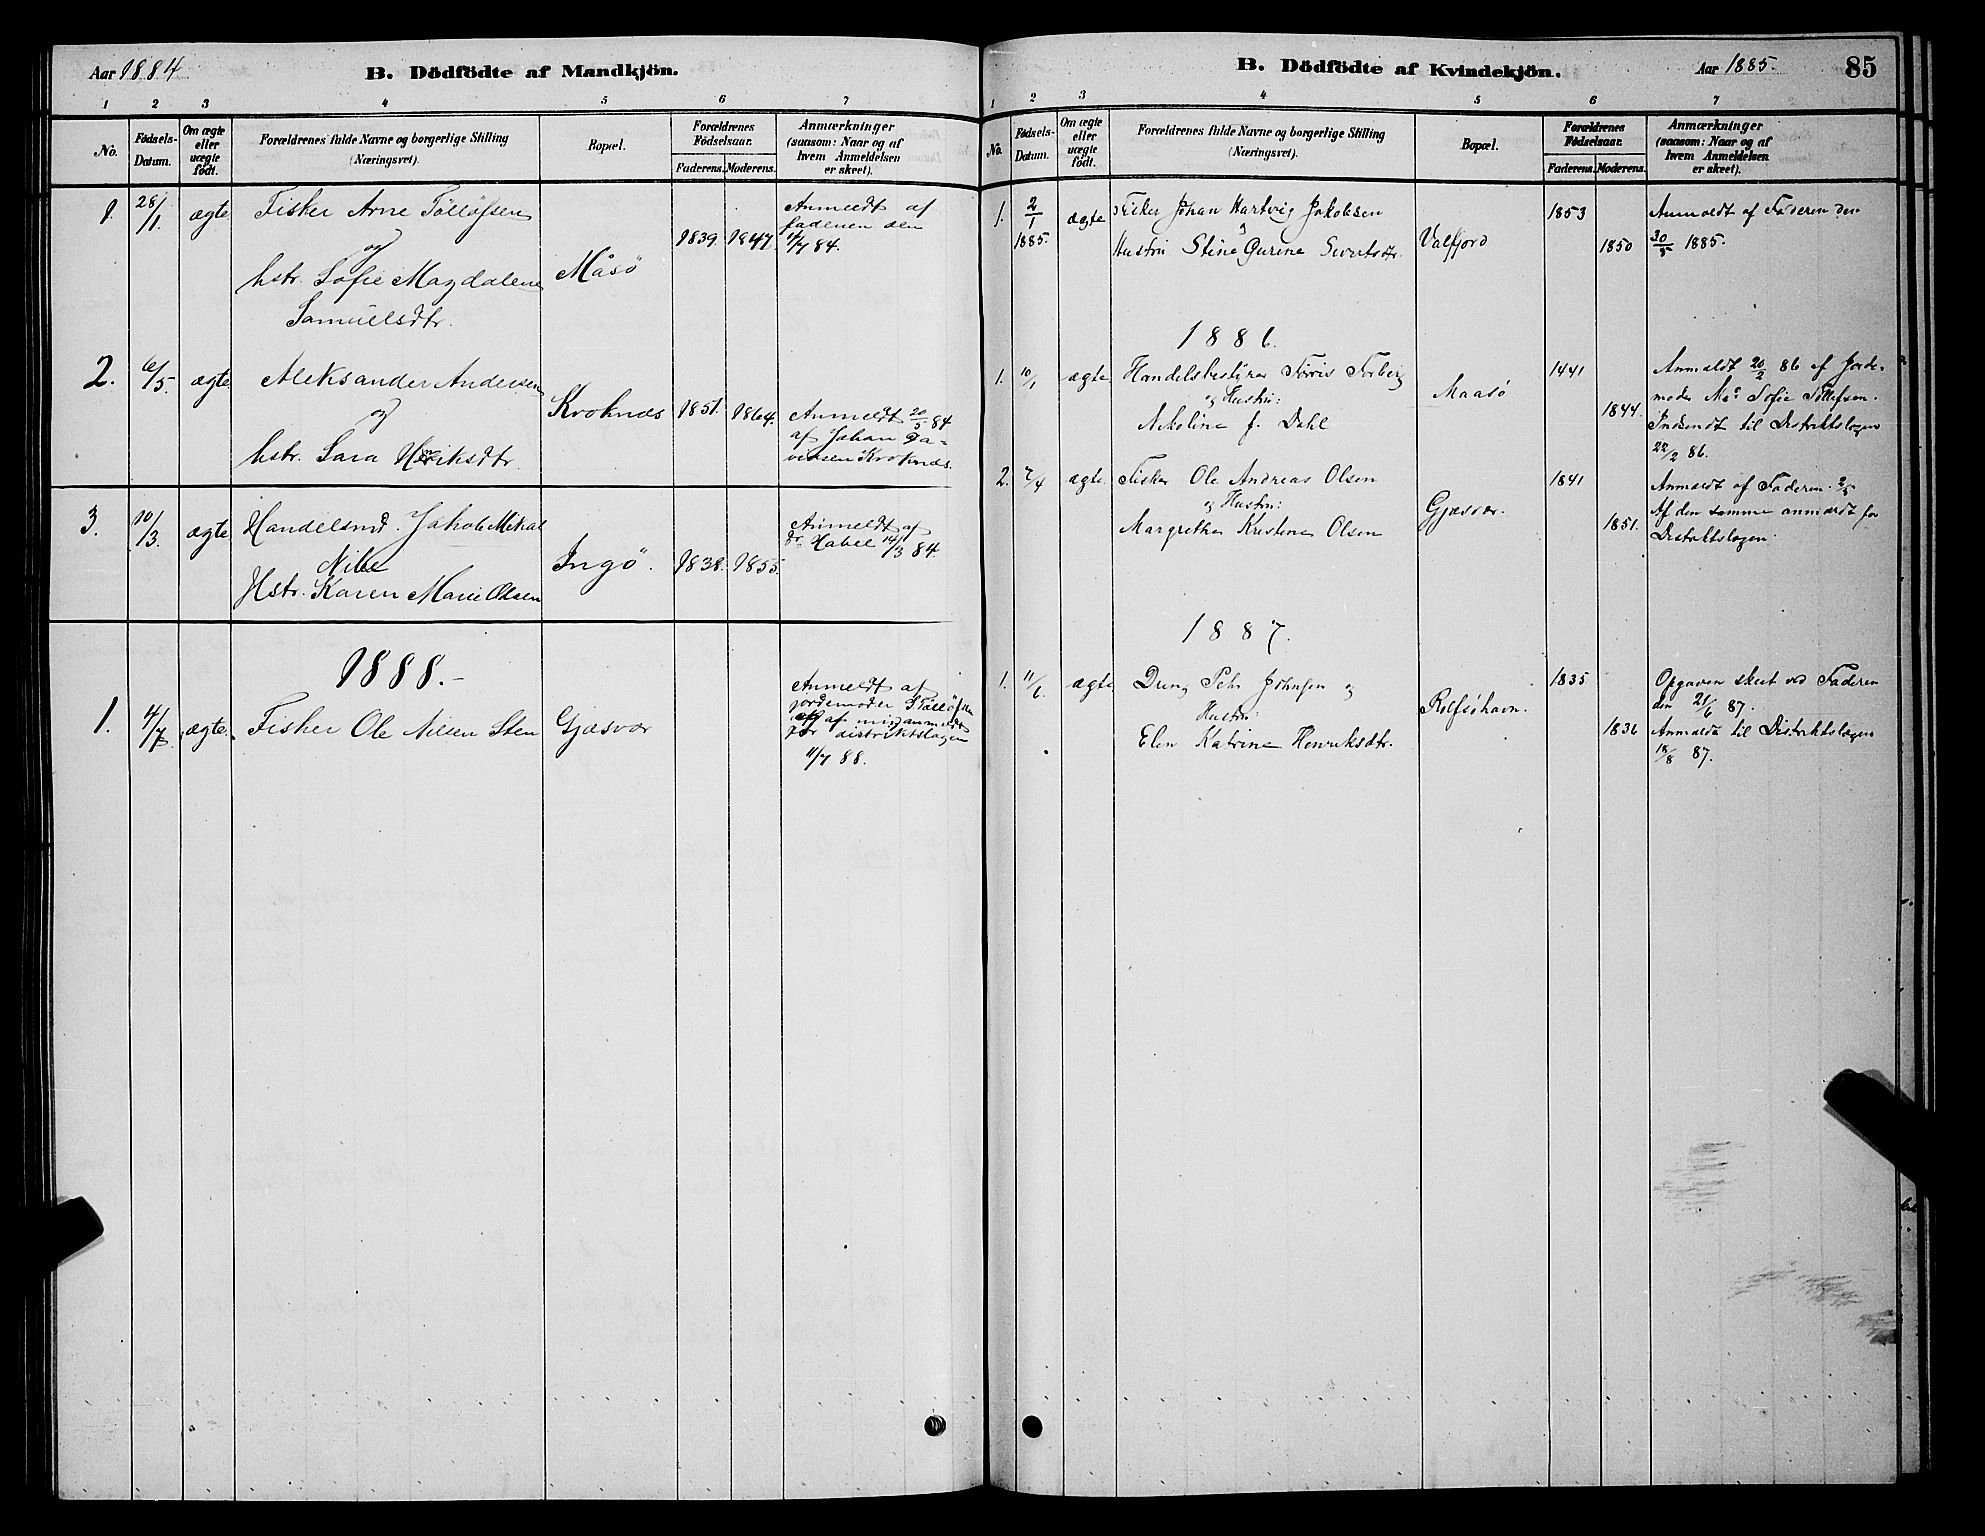 Aar 1884
B. Dödfödte af Mandkjön.
1 2 3 4 5 6 7
No.
Fødsels-
Datum.
Om ægte
eller
uægte
født.
Forældrenes fulde Navne og borgerlige Stilling
(Næringsvei).
Bopæl.
Forældrenes
Fødselsaar.
Faderens. Moderens.
Anmærkninger
(saasom: Naar og af
hvem Anmeldelsen
er skeet).
1. 28/1. ægte
Fisker Arne Tölläfsen
og
hstr. Sofie Magdalene
Samuelsdtr.
Måsö
1839. 1847.
Anmeldt af
faderen den
84.
2. 6/5. ægte
Aleksander Andersen
og
hstr. Sara Henriksdtr.
Kroknæs
1851. 1864.
Anmeldt 20/5 84
af Johan Da-
vidsen Kroknæs.
3. 10/3. ægte
Handelsmd. Jakob Mikal
Hstr. Karen Marie Olsen
Ingö.
1838. 1855.
Anmeldt af
Habel 14/3 84.
1888.-
1. 4/7 ægte.
Fisker Ole Nilsen Sten
Gjæsvær
Anmeldt af
jordemoder
af mig anmeldt
for distriktslægen
11/7 88.
B. Dödfödte af Kvindekjön.
Aar 1885.
85
1 2 3 4 5 6 7
No.
Fødsels-
Datum.
Om ægte
eller
uægte
født.
Forældrenes fulde Navne og borgerlige Stilling
(Næringsvei).
Bopæl.
Forældrenes
Fødselsaar.
Faderens. Moderens.
Anmærkninger
(saasom: Naar og af
hvem Anmeldelsen
er skeet).
1. 2/1 1885. ægte
Fisker Johan Hartvig Jakobsen
Hustru Stine Gurine Sivertsdtr.
Valfjord
1853
1850
Anmeldt af Faderen den
30/5 1885.
1886.
1. 10/1 ægte
Handelsbestyrer
og Hustru:
Nikoline f. Dahl
Maasø
1441
1844.
Anmeldt 20/2 86 af Jorde-
moder Mad. Sofie Tollefsen.
Indsendt til Distriktslægen
22/2 86.
2. ægte.
Fisker Ole Andreas Olsen
og Hustru:
Margrethe Kristine Olsen
Gjæsvær.
1841
1851.
Anmeldt af Faderen. 2/5
Af den samme anmeldt for
Distriktslægen.
1887.
1. 11/6. ægte
Peter Johnsen og
Hustru:
Elen Katrine Henriksdtr.
Rolfsøhavn.
1835
1836
Opgaven skeet ved Faderen
den 21/6 87.
Anmeldt til Distriktslægen
18/8 87.